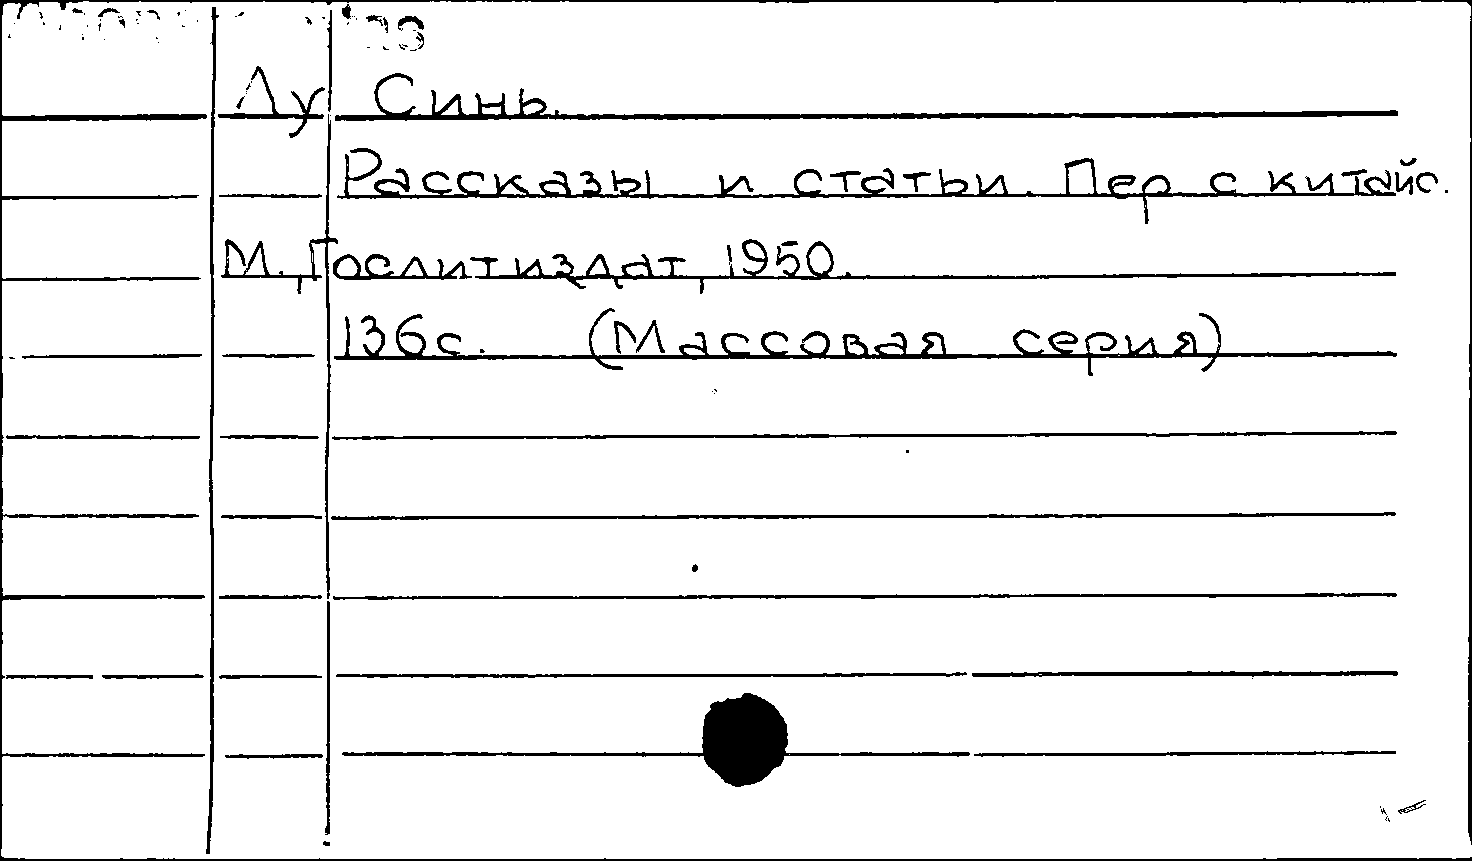 Лу Синь.
Рассказы и статьи. Пер с китайс.
М., Гослитиздат, 1950.
136с. (Массовая серия)